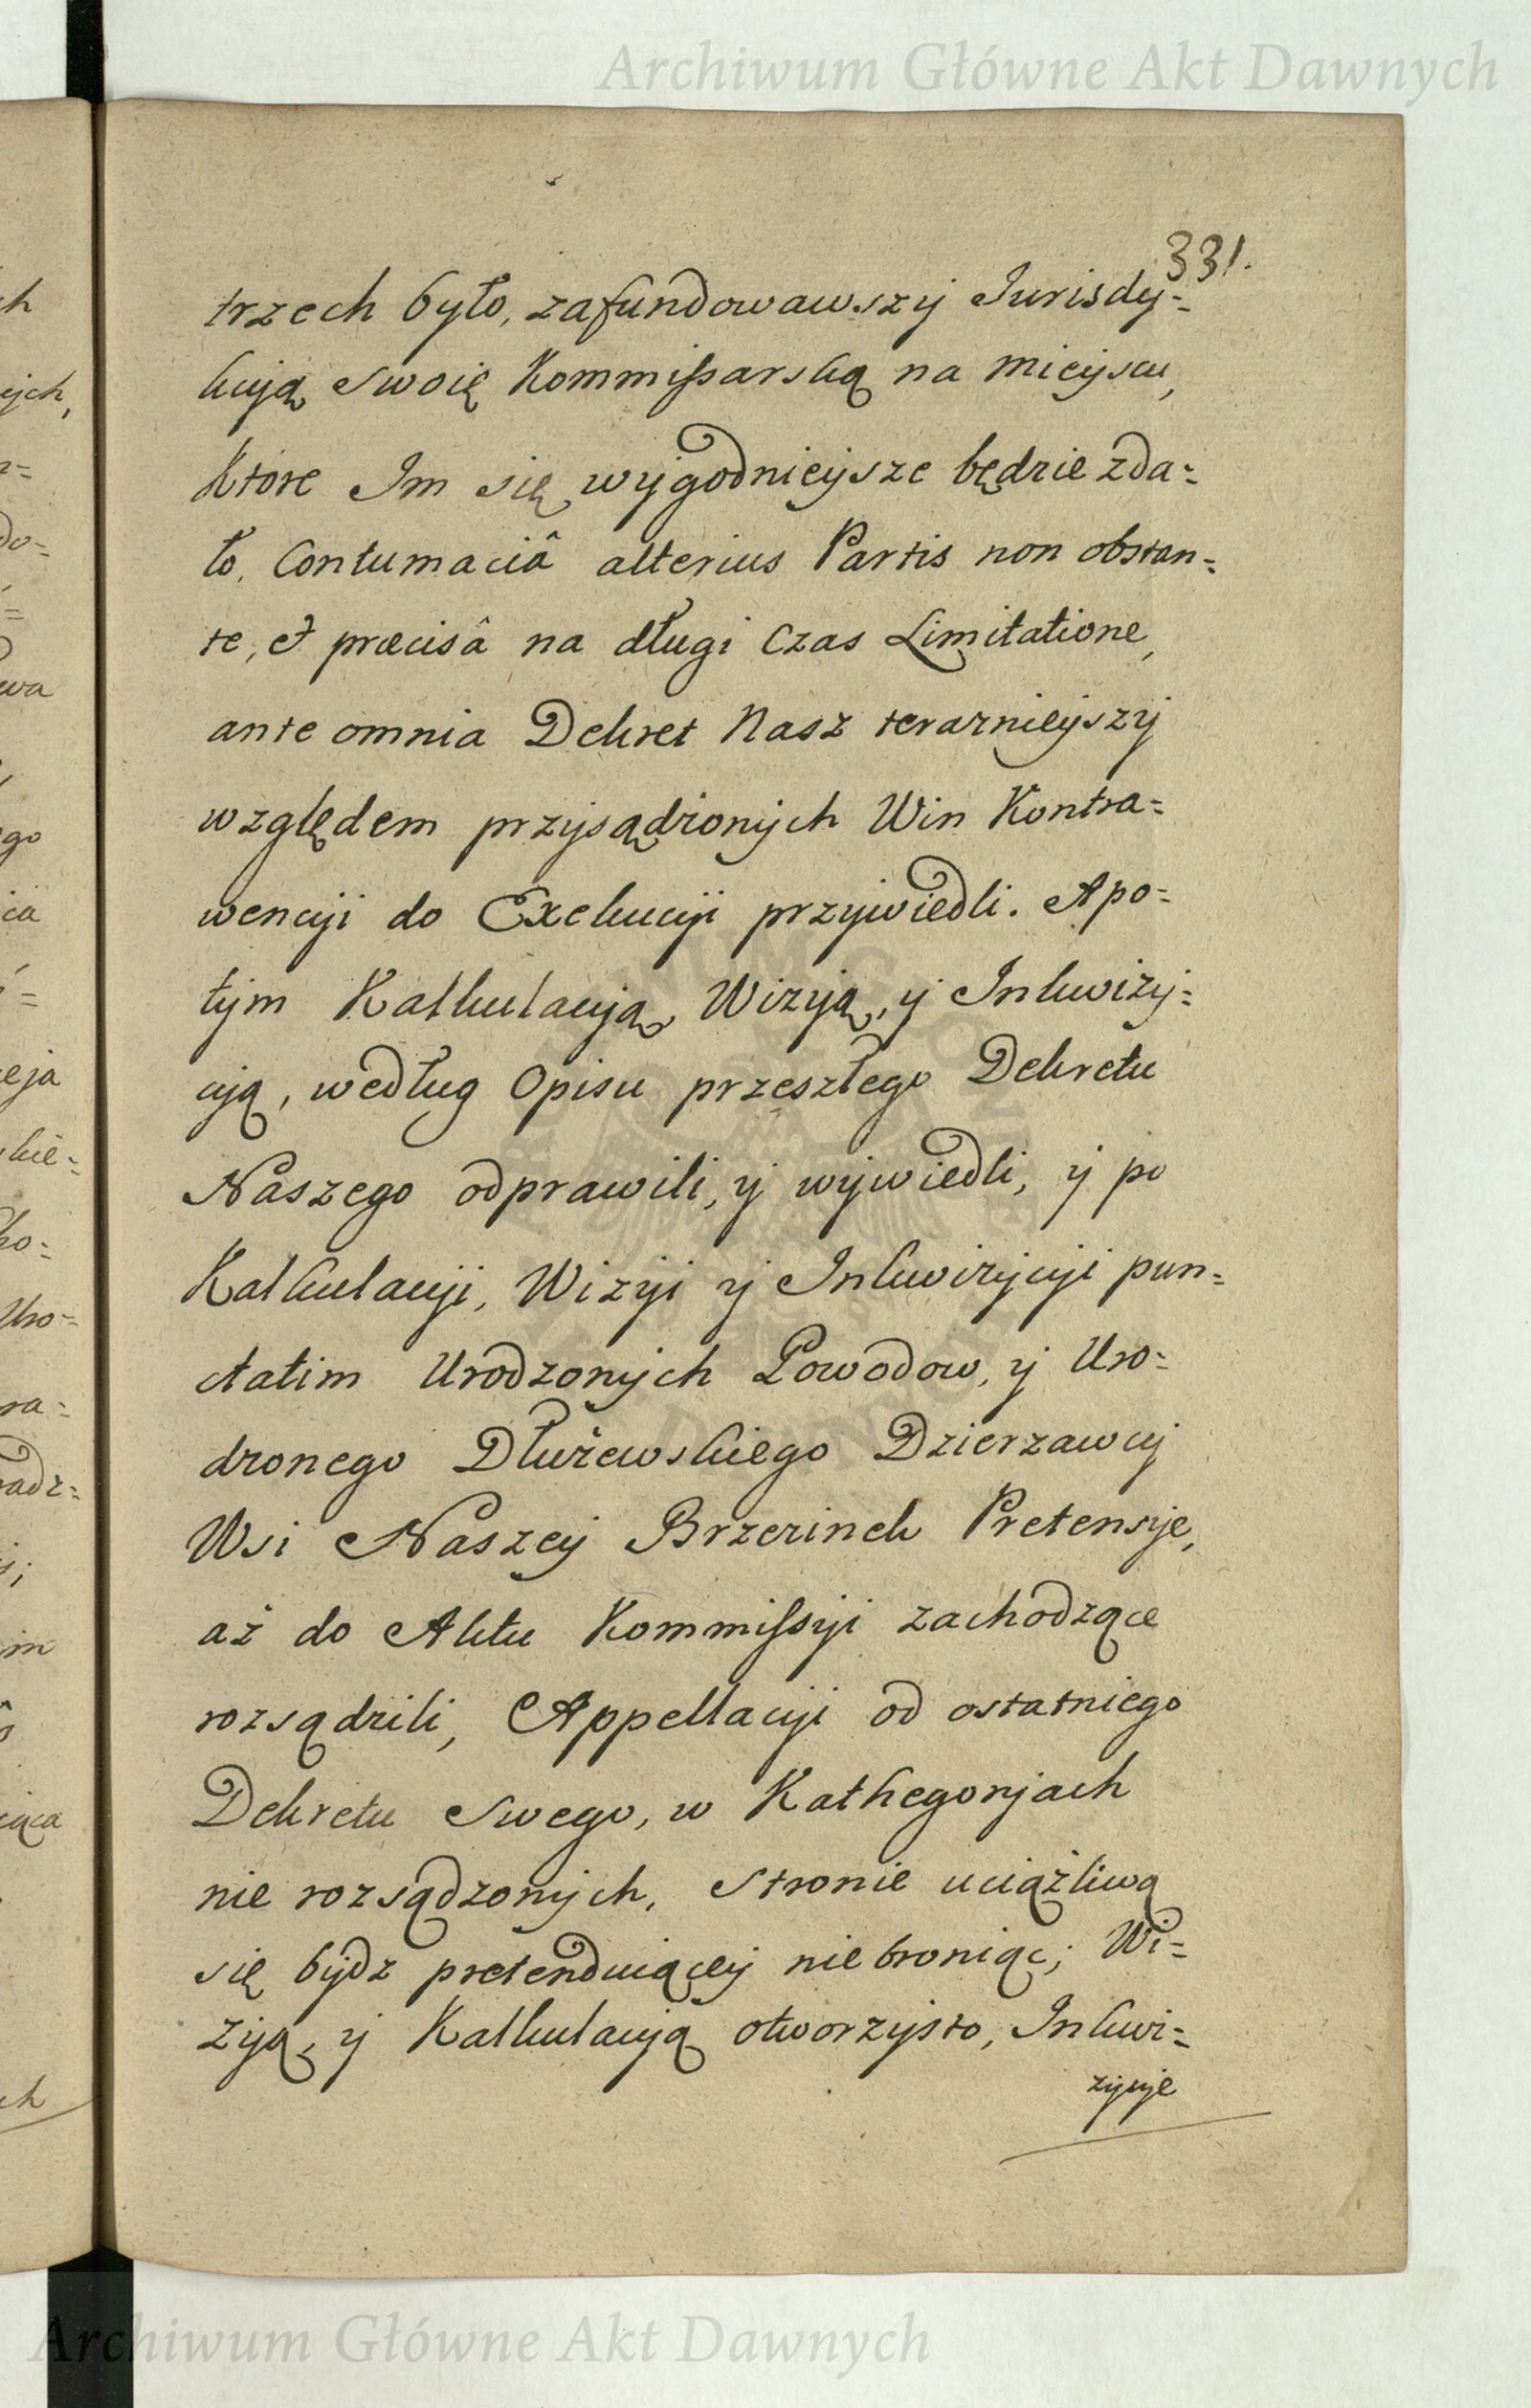 Archiwum Główne Akt Dawnych
331.
trzech było, zafundowawszy Jurisdy=
kcyią swoię Kommissarską na mieyscu,
Które Im się wygodnieysze będzie zda=
ło, Contumaciâ alterius Partis non obstan=
te, et præcisâ na długi Czas Limitatione,
ante omnia Dekret Nasz teraznieyszy
względem przysądzonych Win Kontra=
wencyi do Exekucyi przywiedli. Apo=
tym Kalkulacyją, Wizyją, y Inkwizy=
cyją, według Opisu przeszłego Dekretu
Naszego odprawili, y wywiedli, y po
Kalkulacyi, Wizyi y Inkwizycyi pun=
ctatim Urodzonych Powodow, y Uro=
dzonego Dłużewskiego Dzierzawcy
Wsi Naszey Brzezinek Pretensye,
aż do Aktu Kommissyi zachodzące
rozsądzili, Appellacyi od ostatniego
Dekretu swego, w Kathegoryach
nie rozsądzonych, Stronie uciążliwą
się bydz pretenduiącey nie broniąc; Wi=
zyą, y Kalkulacyją otworzysto, Inkwi=
zycyje
Archiwum Główne Akt Dawnych